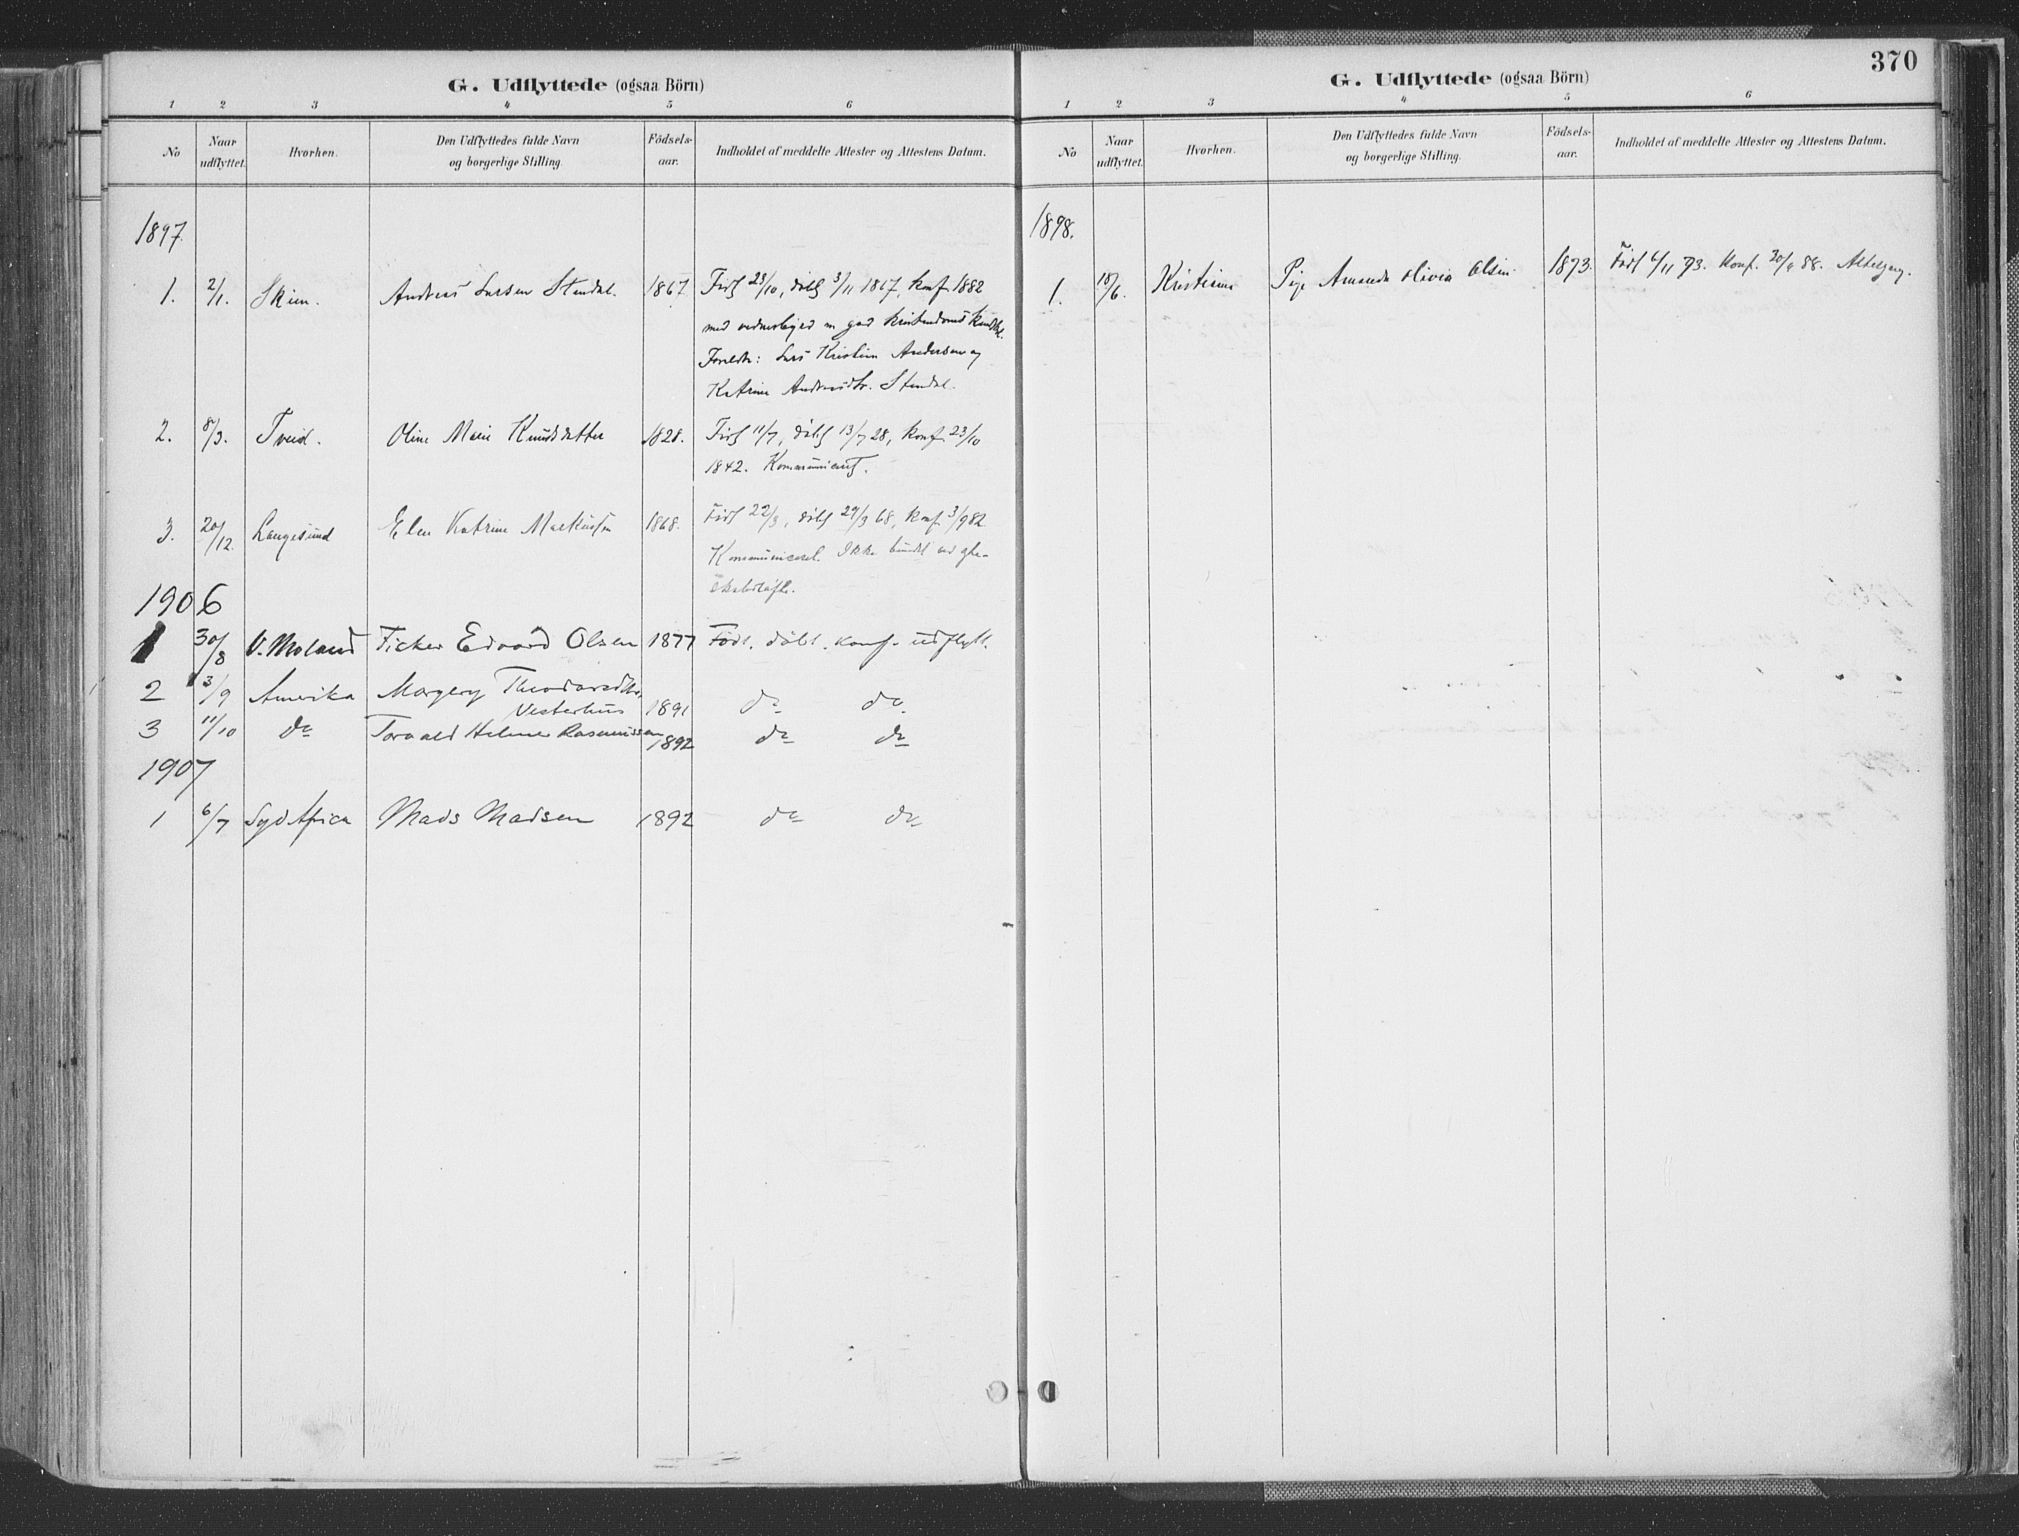 G. Udflyttede (ogsaa Börn)
1 2 3 4 5 6
No Naar udflyttet. Hvorhen. Den Udflyttedes fulde Navn og borgerlige Stilling. Födsels-aar. Indholdet af meddelte Attester og Attestens Datum.
1897.
1. 2/1. Skien. Andreas Larsen Stendal. 1867. Født 23/10, døbt 3/11 1867, konf. 1882
med vidnesbyrd m god kristendoms kundsk.
Foreldr: Lars Kristian Andersen og
Katrine Andreasdtr. Stendal.
2. 8/3. Tveid. Oline Marie Knudsdatter 1828. Født 11/7, døbt 13/7 28, konf. 23/10
1842. Kommunicant.
3. 20/12. Langesund Elen Katrine Markussen 1868. Født 22/3, døbt 29/3 68, konf. 3/9 82
Kommuniceret. Ikke bundet ved gte-
skabsløfte.
1906
1 30/8 V. Moland Ficker Edvard Olsen 1877 Født. døbt. konf. udflytt.
2 3/9 Amerika Margery Theodorsdtr.
Vesterhus 1891 do do
3 11/10 do Torvald Helmer Rasmussen 1892 do do
1907
1 6/7 Syd Africa Mads Madsen 1892 do do
370
G. Udflyttede (ogsaa Börn)
1 2 3 4 5 6
No Naar udflyttet. Hvorhen. Den Udflyttedes fulde Navn og borgerlige Stilling. Födsels-aar. Indholdet af meddelte Attester og Attestens Datum.
1898.
1. 18/6. Kristiania Pige Amanda Olivia Olsen. 1873. Født 6/11 73. Konf. 30/9 88. Altergang.